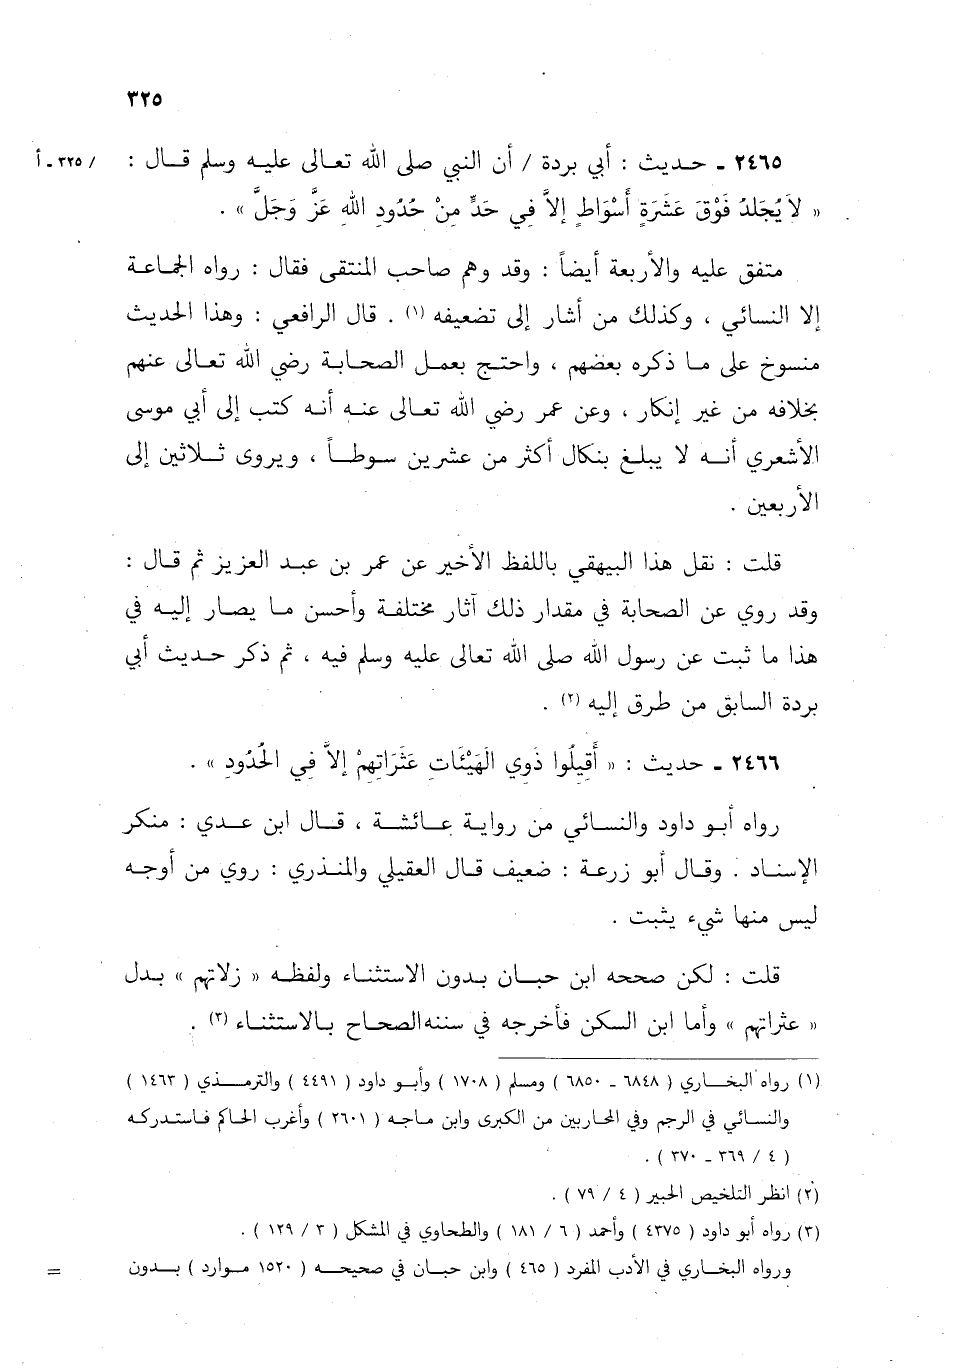 ٣٢٥
٢٤٦٥ ـ حديث : أبي بردة / أن النبي صلى الله تعالى عليه وسلم قال : / ٣٢٥ ـ أ
« لاَ يُجَلدُ فَوْقَ عَشَرَةٍ أَسْوَاطٍ إلاَّ فِي حَدٍّ مِنْ حُدُودِ اللهِ عَزَّ وَجَلَّ » .
متفق عليه والأربعة أيضاً : وقد وهم صاحب المنتقى فقال : رواه الجماعة
إلا النسائي ، وكذلك من أشار إلى تضعيفه (١) . قال الرافعي : وهذا الحديث
منسوخ على ما ذكره بعضهم ، واحتج بعمل الصحابة رضي الله تعالى عنهم
بخلافه من غير إنكار ، وعن عمر رضي الله تعالى عنه أنه كتب إلى أبي موسى
الأشعري أنه لا يبلغ بنكال أكثر من عشرين سوطاً ، ويروى ثلاثين إلى
الأربعين .
قلت : نقل هذا البيهقي باللفظ الأخير عن عمر بن عبد العزيز ثم قال :
وقد روي عن الصحابة في مقدار ذلك آثار مختلفة وأحسن ما يصار إليه في
هذا ما ثبت عن رسول الله صلى الله تعالى عليه وسلم فيه ، ثم ذكر حديث أبي
بردة السابق من طرق إليه (٢) .
٢٤٦٦ ـ حديث : « أَقِيلُوا ذَوِي الَهَيْئَاتِ عَثَرَاتِهِمْ إلاَّ فِي الحُدُودِ » .
رواه أبو داود والنسائي من رواية عائشة ، قال ابن عدي : منكر
الإسناد . وقال أبو زرعة : ضعيف قال العقيلي والمنذري : روي من أوجه
ليس منها شيء يثبت .
قلت : لكن صححه ابن حبان بدون الاستثناء ولفظه « زلاتهم » بدل
« عثراتهم » وأما ابن السكن فأخرجه في سننه الصحاح بالاستثناء (٣) .
(١) رواه البخاري ( ٦٨٤٨ ـ ٦٨٥٠ ) ومسلم ( ١٧٠٨ ) وأبو داود ( ٤٤٩١ ) والترمذي ( ١٤٦٣ )
والنسائي في الرجم وفي المحاربين من الكبرى وابن ماجه ( ٢٦٠١ ) وأغرب الحاكم فاستدركه
( ٤ / ٣٦٩ ـ ٣٧٠ ) .
(٢) انظر التلخيص الحبير ( ٤ / ٧٩ ) .
(٣) رواه أبو داود ( ٤٣٧٥ ) وأحمد ( ٦ / ١٨١ ) والطحاوي في المشكل ( ٣ / ١٢٩ ) .
ورواه البخاري في الأدب المفرد ( ٤٦٥ ) وابن حبان في صحيحه ( ١٥٢٠ موارد ) بدون =